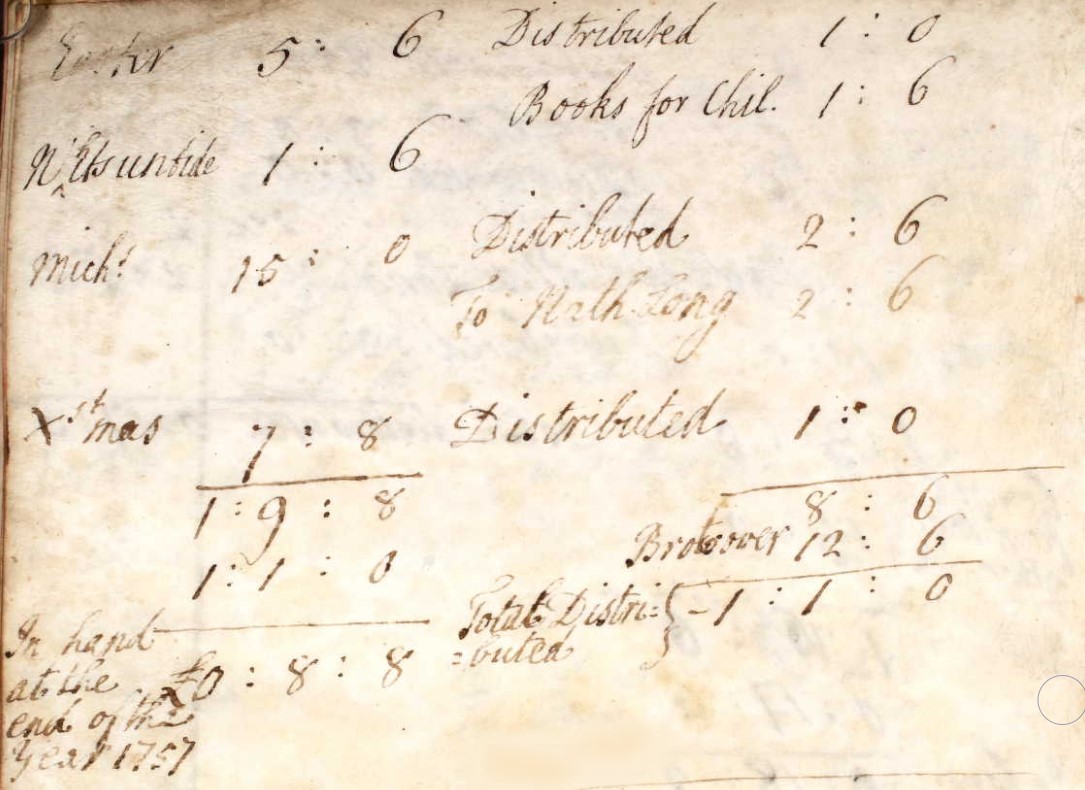 Easter 5 : 6 Distributed 1 : 0
Books for Chil. 1 : 6
Whitsuntide 1 : 6
Mich.s 15 : 0 Distributed 2 : 6
To Nath Long 2 : 6
Xstmas 7 : 8 Distributed 1 : 0
1 : 9 : 8 8 : 6
Brot over 12 : 6
1 : 1 : 0
Total Distri= } - 1 : 1 : 0
=buted
In hand
at the £0 : 8 : 8
end of the
Year 1757